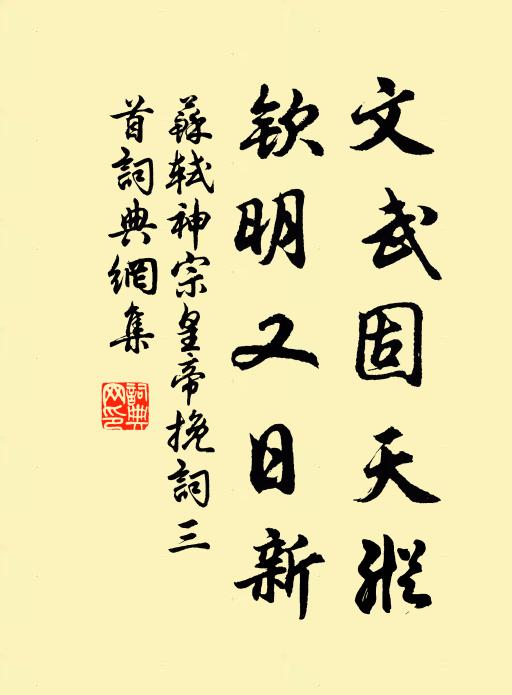 文武固天縱
欽明又日新
蘇軾神宗皇帝挽詞三
首詞典網集
詞典
网印